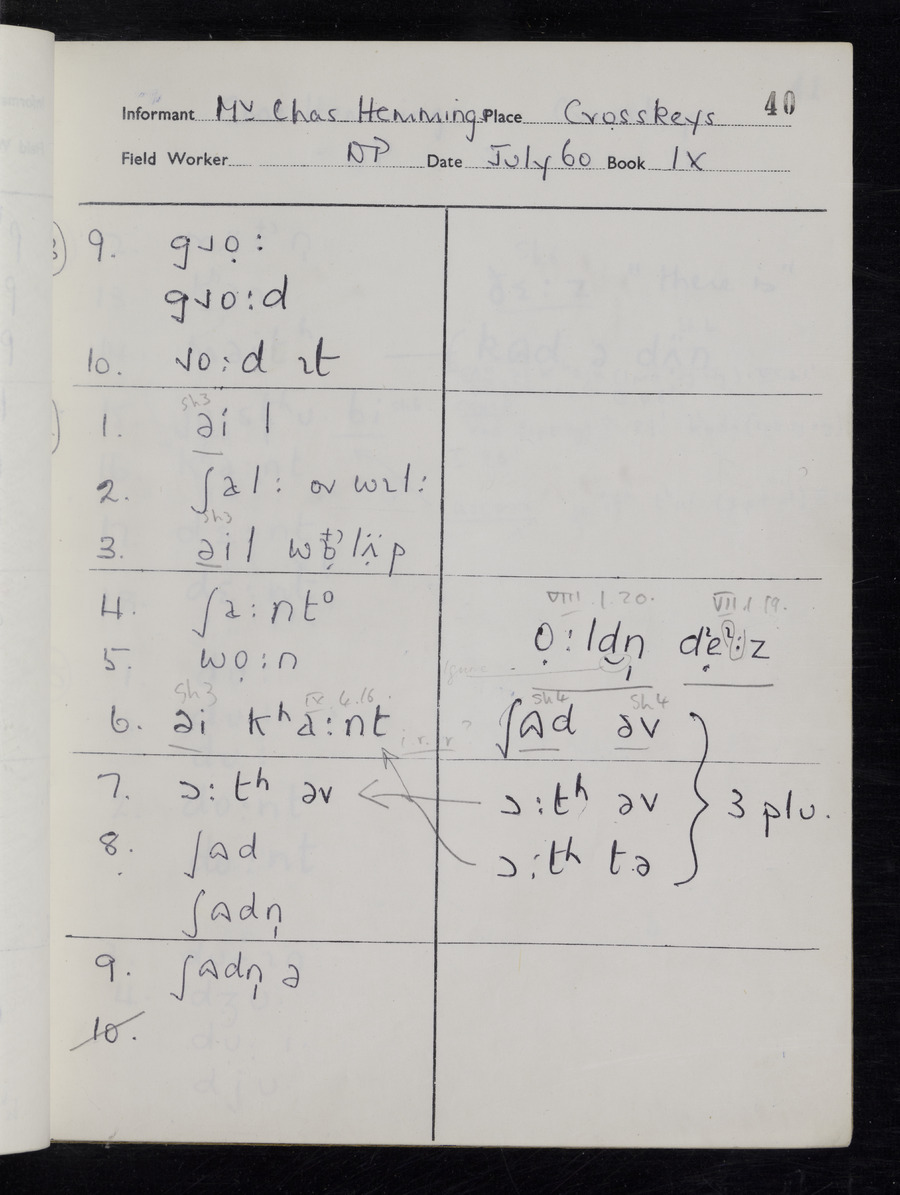 40
Informant Mr Chas Hemming Place Crosskeys
Field Worker DP Date July 60 Book IX
9. gɹọ:
gɹo:d
10. ɹo:d ɪt
sh3
1. əi l
2. ʃal: or wɪl:
sh3
3. əil
4. ʃa:nt°
5. wọ:n
6. əi kʰa:nt
sh3 IX.4.16.
7. ɔ:tʰ əv
8. ʃɒd
ʃɒdn̩
9. ʃɒdn̩ ə
10.
VIII.1.20. VII.1.19.
ọ:ldn̩
sh4 sh4
ʃɒd əv
ɔ:tʰ əv
ɔ:tʰ tə
3 plu.